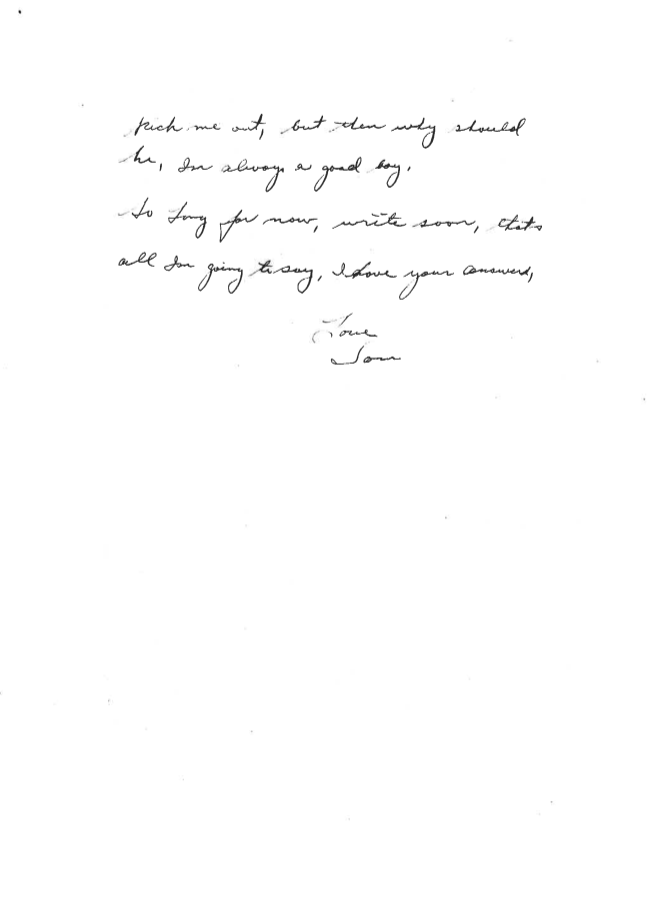 kick me out, but then why should
he, Im always a good boy.
So long for now, write soon, thats
all Im going to say, I love your answers,
Love
Tom